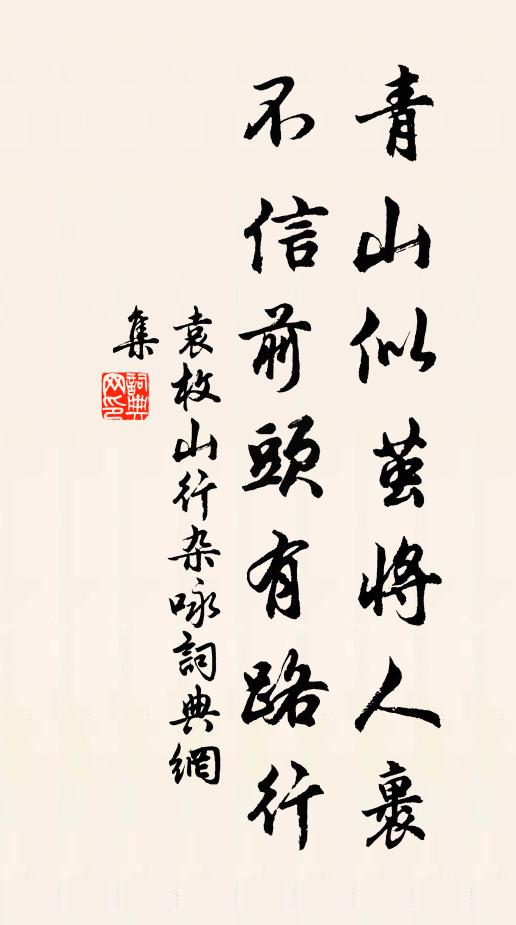 青山似茧將人裹
不信前頭有路行
袁枚山行杂咏詞典網
集
詞典
网印